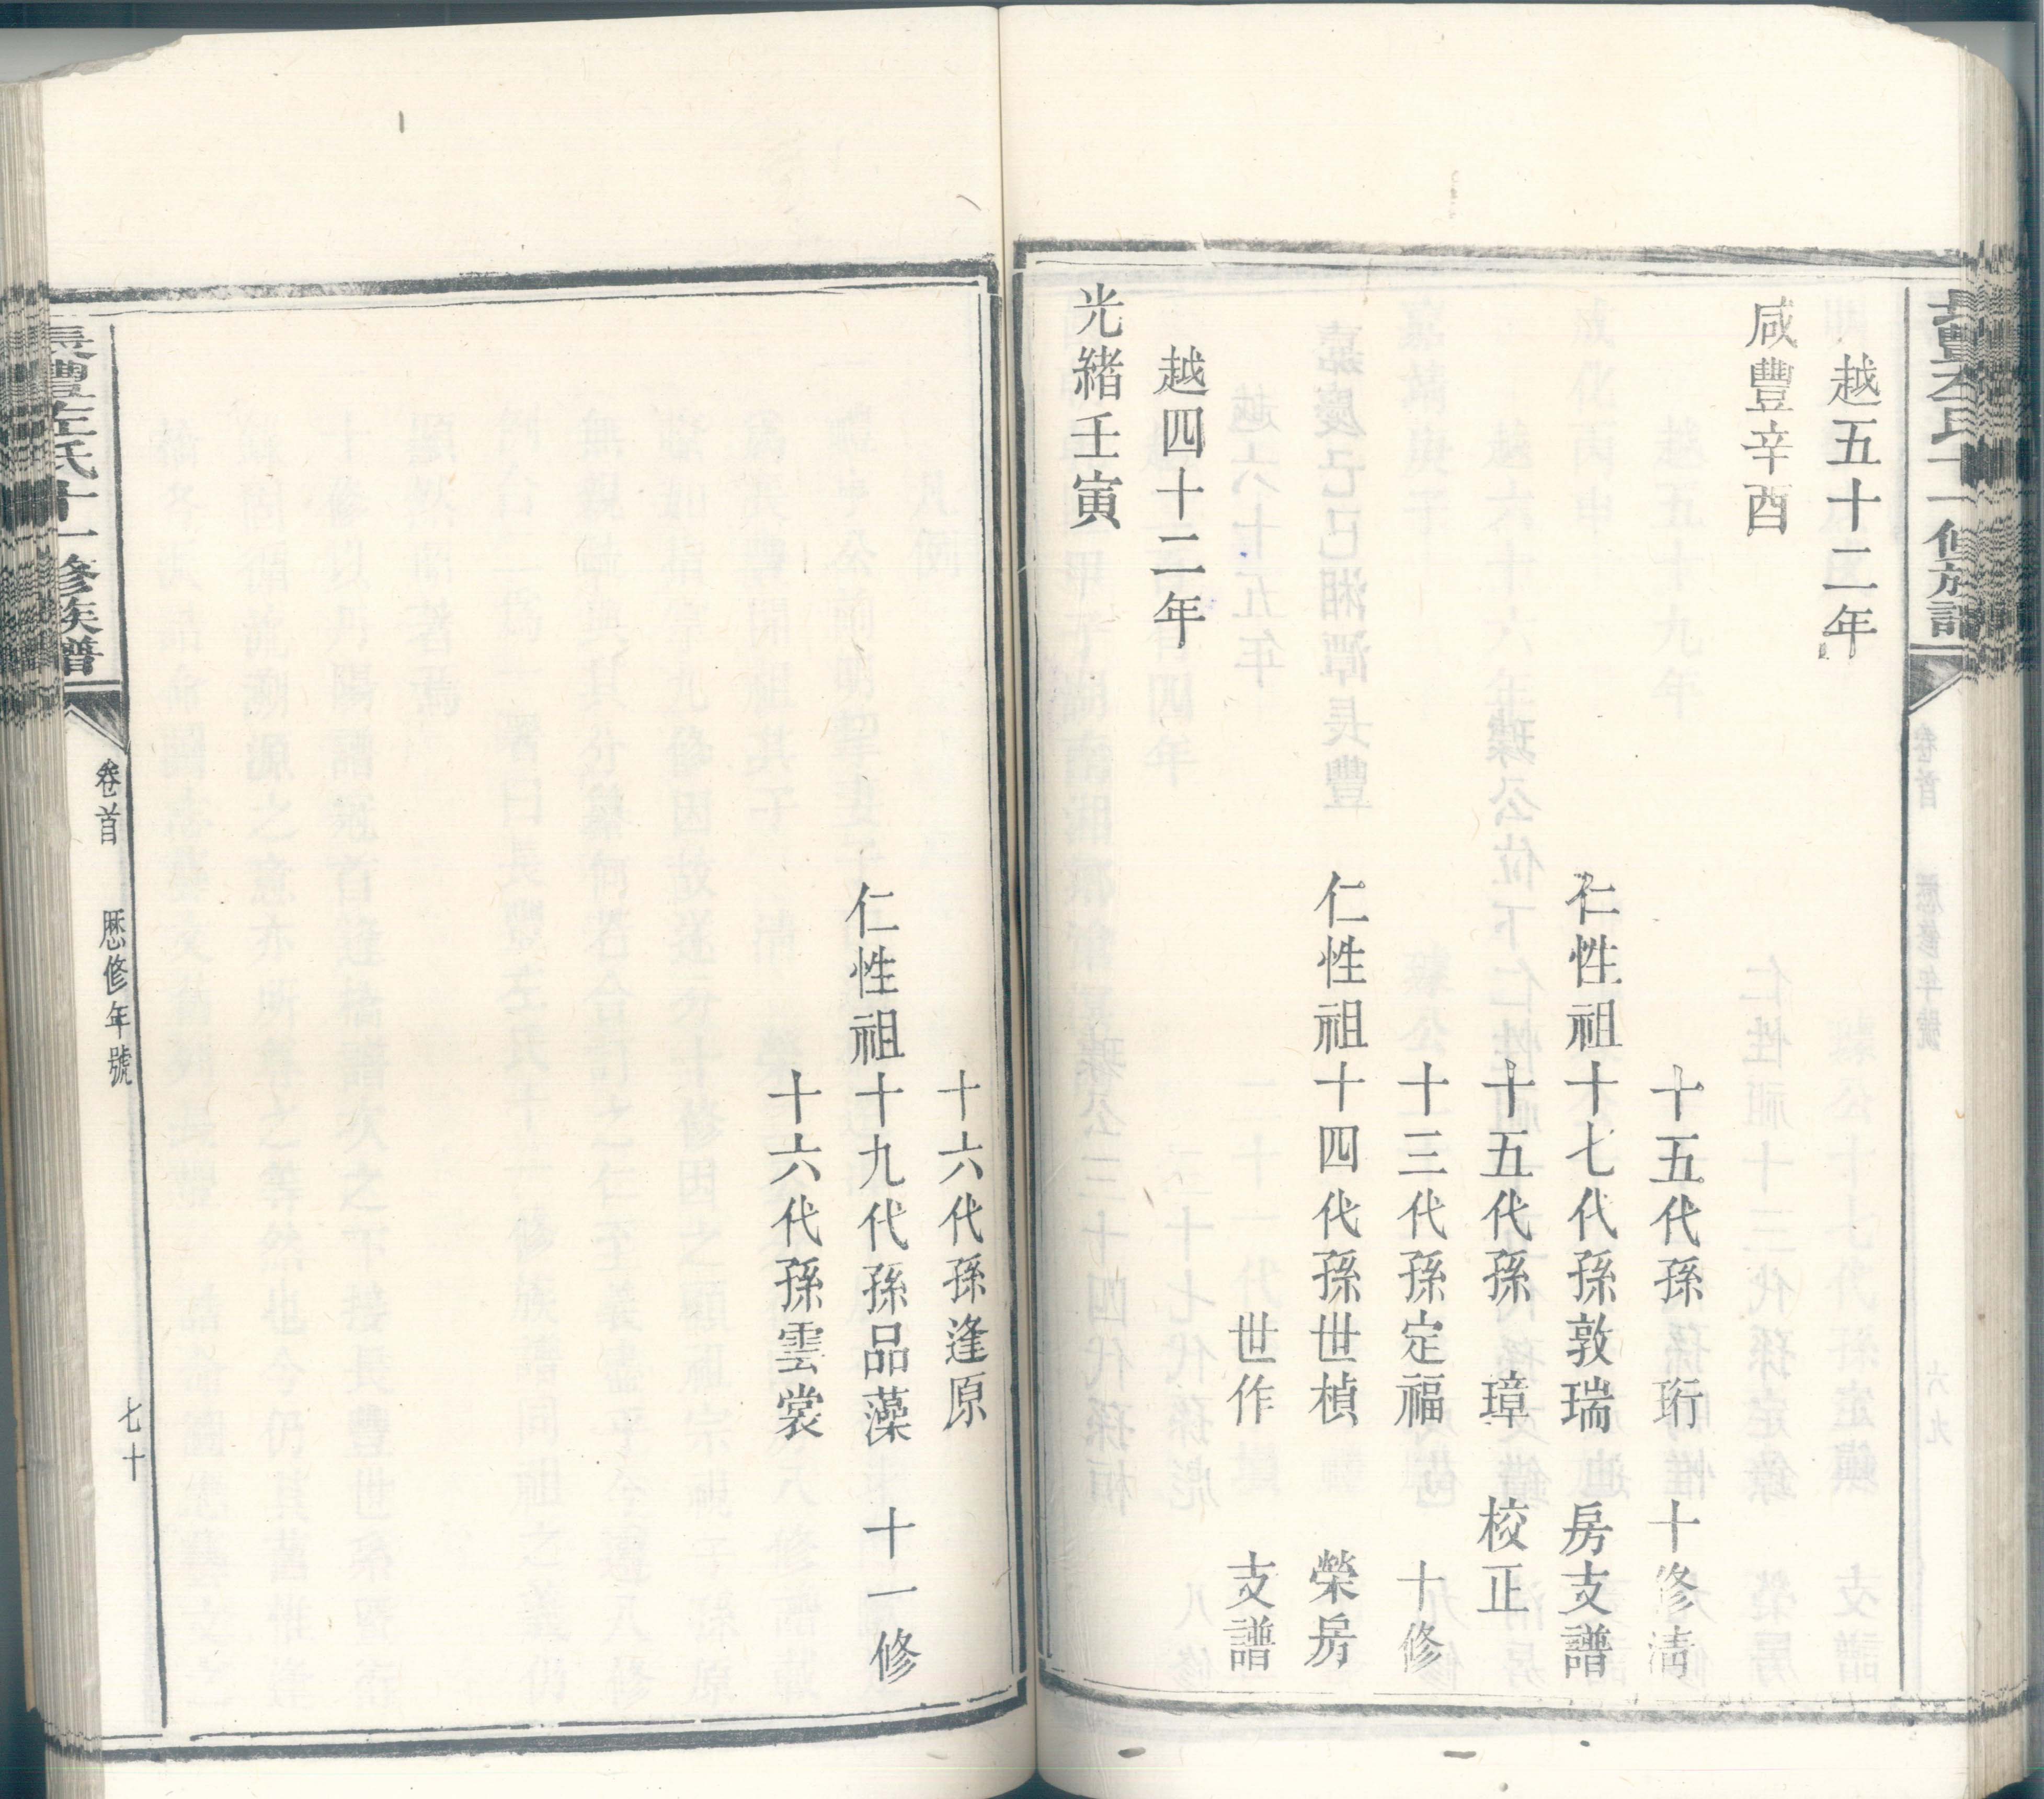 越五十二年
咸豐辛酉
十五代孫 珩 十修清
仁性祖十七代孫敦瑞 房支譜
十五代孫 璋 校正
十三代孫定福 十修
仁性祖十四代孫世楨 榮房
世作 支譜
越四十二年
光緒壬寅
十六代孫逢原
仁性祖十九代孫品藻 十一修
十六代孫雲裳
長豐左氏十一修族譜
卷首 歷修年號 七十